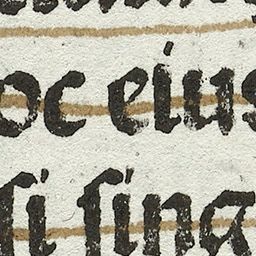 oc eius
si sing